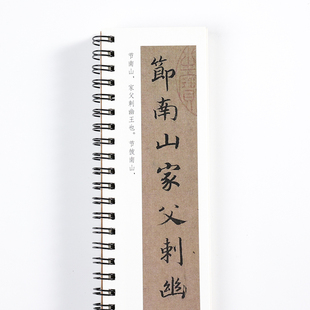 節南山家父刺幽
节南山，家父刺幽王也。节彼南山，